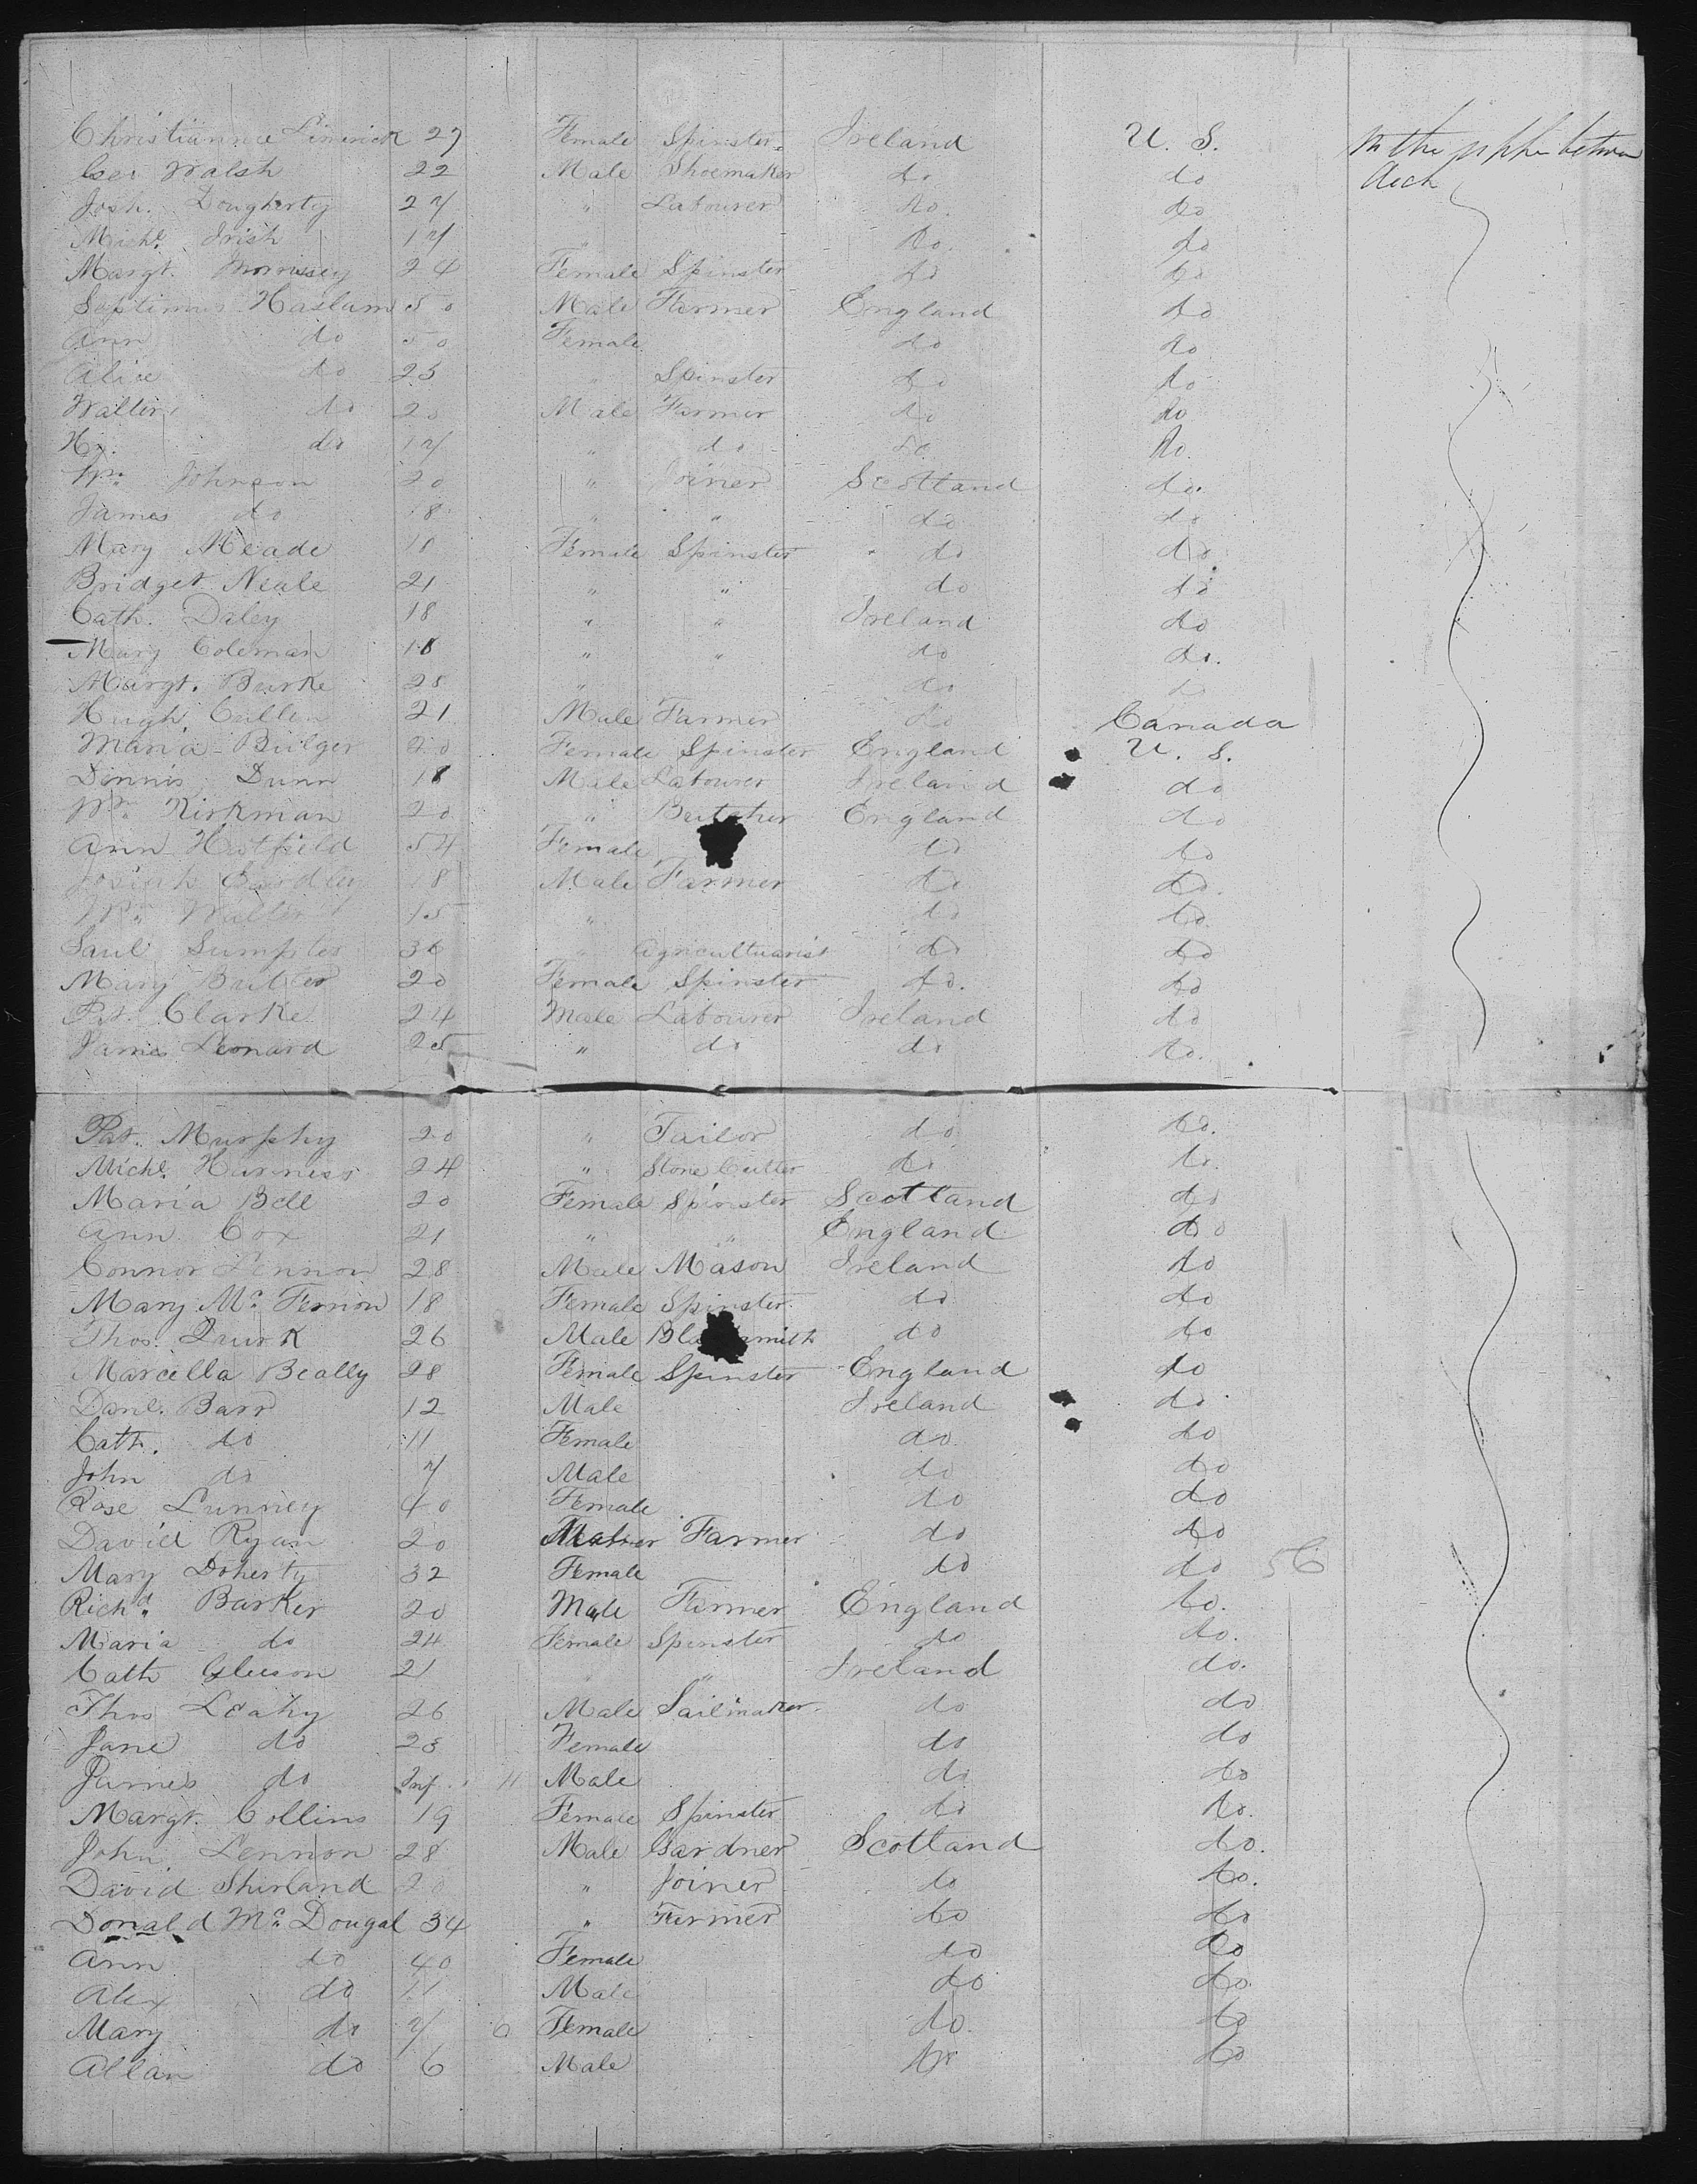 Christianna Limerick 27 Female Spinster Ireland U. S. In the upper between
Geo Walsh 22 Male Shoemaker do do deck
Josh. Dougherty 27 " Labourer do do
Michl. Irish 17 " do do
Margt. Morrissey 24 Female Spinster do do
Septimus Haslum 50 Male Farmer England do
Ann do 50 Female do do
Alice do 25 " Spinster do do
Walter do 20 Male Farmer do do
Hy. do 17 " do do do
Wm. Johnson 20 " Joiner Scotland do
James do 18 " " do do
Mary Meade 18 Female Spinster do do
Bridget Neale 21 " " do do
Cath. Daley 18 " " Ireland do
Mary Coleman 18 " " do do
Margt. Burke 28 " do do
Hugh Cullen 21 Male Farmer do Canada
Maria Bulger 20 Female Spinster England U. S.
Dennis Dunn 18 Male Labourer Ireland do
Wm. Kirkman 20 " Butcher England do
Ann Hatfield 54 Female do do
Josiah 18 Male Farmer do do
Wm. 15 " do do
Saul Sumpter 36 " Agricultuarist do do
Mary Butler 20 Female Spinster do do
Pat. Clarke 24 Male Labourer Ireland do
James Leonard 25 " do do do
Pat. Murphy 20 " Tailor do do
Michl. Harness 24 " Stone Cutter do do
Maria Bell 20 Female Spinster Scotland do
Ann Cox 21 " " England do
Connor Lennon 28 Male Mason Ireland do
Mary Mc. Fernon 18 Female Spinster do do
Thos. Quirk 26 Male Blacksmith do do
Marcella Beally 28 Female Spinster England do
Danl. Barr 12 Male Ireland do
Cath. do 11 Female do do
John do 7 Male do do
Rose Lunney 40 Female do do
David Ryan 20 Male Farmer do do
Mary Doherty 32 Female do do 56
Richd. Barker 20 Male Farmer England do
Maria do 24 Female Spinster do do
Cath Gleeson 21 " " Ireland do
Thos Leahy 26 Male Sailmaker do do
Jane do 23 Female do do
James do Inf. 11 Male do do
Margt. Collins 19 Female Spinster do do
John Lennon 28 Male Gardner Scotland do
David Shirland 20 " Joiner do do
Donald Mc. Dougal 34 " Farmer do do
Ann do 40 Female do do
Alex do 11 Male do do
Mary do 7 Female do do
Allan do 6 Male do do